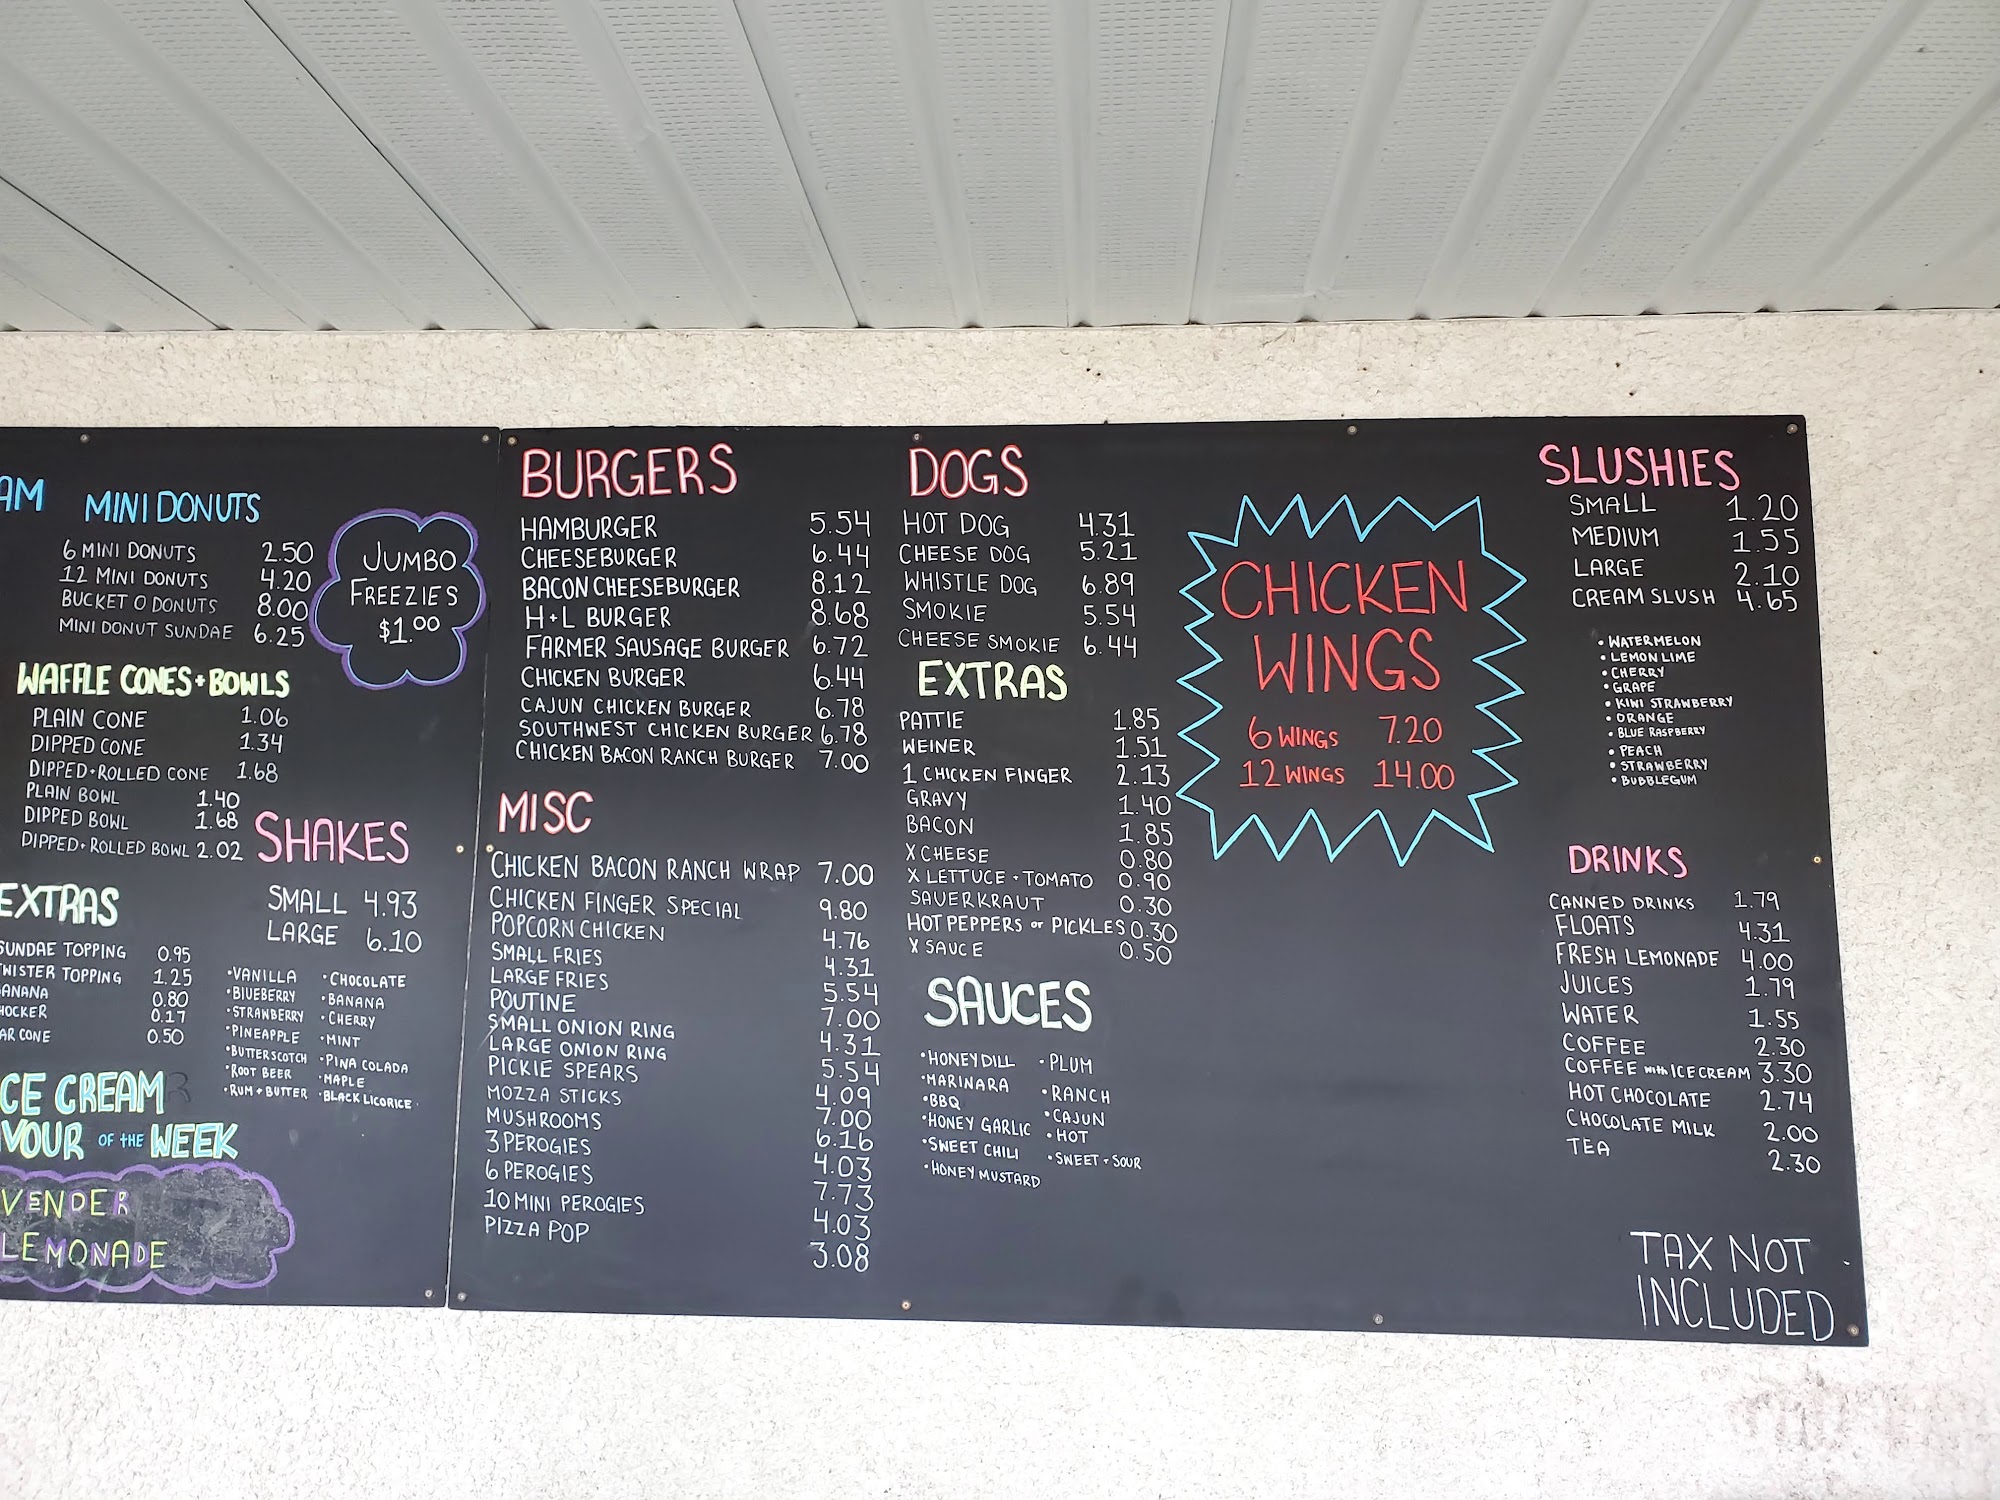 AM
MINI DONUTS
6 MINI DONUTS 2.50
12 MINI DONUTS 4.20
BUCKET O DONUTS 8.00
MINI DONUT SUNDAE 6.25
JUMBO
FREEZIES
$1.00
WAFFLE CONES + BOWLS
PLAIN CONE 1.06
DIPPED CONE 1.34
DIPPED + ROLLED CONE 1.68
PLAIN BOWL 1.40
DIPPED BOWL 1.68
DIPPED + ROLLED BOWL 2.02
SHAKES
SMALL 4.93
LARGE 6.10
• VANILLA • CHOCOLATE
• BLUEBERRY • BANANA
• STRAWBERRY • CHERRY
• PINEAPPLE • MINT
• BUTTERSCOTCH • PINA COLADA
• ROOT BEER • MAPLE
• RUM + BUTTER • BLACK LICORICE
EXTRAS
SUNDAE TOPPING 0.95
TWISTER TOPPING 1.25
ANANA 0.80
HOCKER 0.17
AR CONE 0.50
CE CREAM
AVOUR OF THE WEEK
VENDER
LEMONADE
BURGERS
HAMBURGER 5.54
CHEESEBURGER 6.44
BACON CHEESEBURGER 8.12
H+L BURGER 8.68
FARMER SAUSAGE BURGER 6.72
CHICKEN BURGER 6.44
CAJUN CHICKEN BURGER 6.78
SOUTHWEST CHICKEN BURGER 6.78
CHICKEN BACON RANCH BURGER 7.00
MISC
CHICKEN BACON RANCH WRAP 7.00
CHICKEN FINGER SPECIAL 9.80
POPCORN CHICKEN 4.76
SMALL FRIES 4.31
LARGE FRIES 5.54
POUTINE 7.00
SMALL ONION RING 4.31
LARGE ONION RING 5.54
PICKIE SPEARS 4.09
MOZZA STICKS 7.00
MUSHROOMS 6.16
3 PEROGIES 4.03
6 PEROGIES 7.73
10 MINI PEROGIES 4.03
PIZZA POP 3.08
DOGS
HOT DOG 4.31
CHEESE DOG 5.21
WHISTLE DOG 6.89
SMOKIE 5.54
CHEESE SMOKIE 6.44
EXTRAS
PATTIE 1.85
WEINER 1.51
1 CHICKEN FINGER 2.13
GRAVY 1.40
BACON 1.85
X CHEESE 0.80
X LETTUCE + TOMATO 0.90
SAUERKRAUT 0.30
HOT PEPPERS or PICKLES 0.30
X SAUCE 0.50
SAUCES
• HONEYDILL • PLUM
• MARINARA • RANCH
• BBQ • CAJUN
• HONEY GARLIC • HOT
• SWEET CHILI • SWEET + SOUR
• HONEY MUSTARD
CHICKEN
WINGS
6 WINGS 7.20
12 WINGS 14.00
SLUSHIES
SMALL 1.20
MEDIUM 1.55
LARGE 2.10
CREAM SLUSH 4.65
• WATERMELON
• LEMON LIME
• CHERRY
• GRAPE
• KIWI STRAWBERRY
• ORANGE
• BLUE RASPBERRY
• PEACH
• STRAWBERRY
• BUBBLEGUM
DRINKS
CANNED DRINKS 1.79
FLOATS 4.31
FRESH LEMONADE 4.00
JUICES 1.79
WATER 1.55
COFFEE 2.30
COFFEE with ICE CREAM 3.30
HOT CHOCOLATE 2.74
CHOCOLATE MILK 2.00
TEA 2.30
TAX NOT
INCLUDED